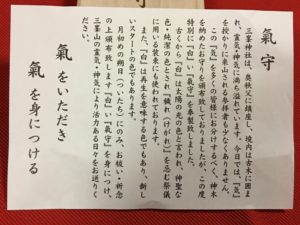 氣守
三峯神社は、奥秩父に鎮座し、境内は古木に囲ま
れ、霊気・神気に満ち溢れています。今日では、「気」
を授かりに来山される参拝者も少なくありません。
この「気」を多くの皆様にお分けするべく、神木
を納めたお守りを頒布しておりましたが、この度
特別に「白」い「氣守」を奉製致しました。
古くから「白」は太陽の光の色と言われ、神聖な
色・純潔の色とされ「穢れ（けがれ）」を忌む祭儀
に用いる装束にも使われております。
また、「白」は再生を意味する色でもあり、新し
いスタートの色でもあります。
月初めの朔日（ついたち）にのみ、お祓い・祈念
の上頒布致します「白」い「氣守」を身につけ、
三峯山の霊気・神気により活力ある日々をお送りく
ださい。
氣をいただき
氣を身につける